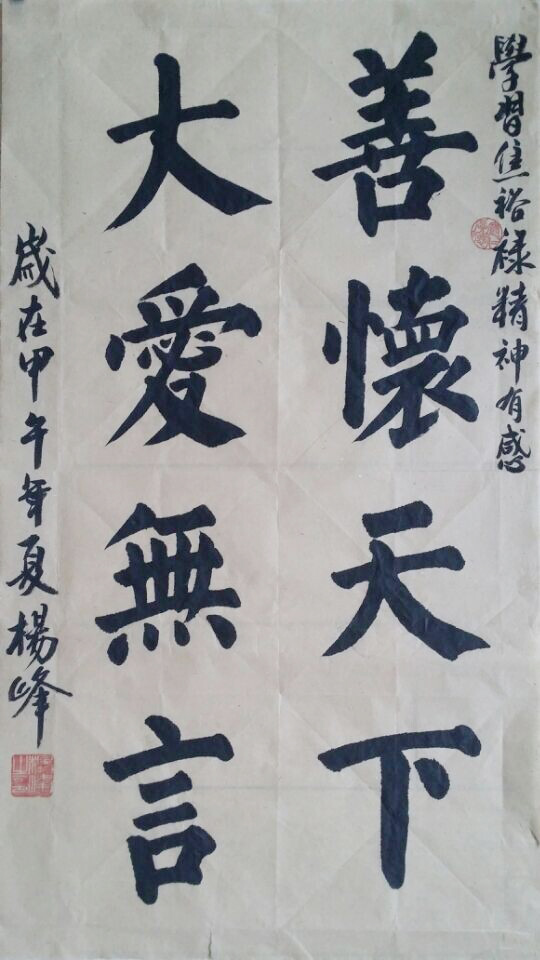 學習焦裕禄精神有感
善懷天下
大愛無言
歲在甲午年夏楊峰